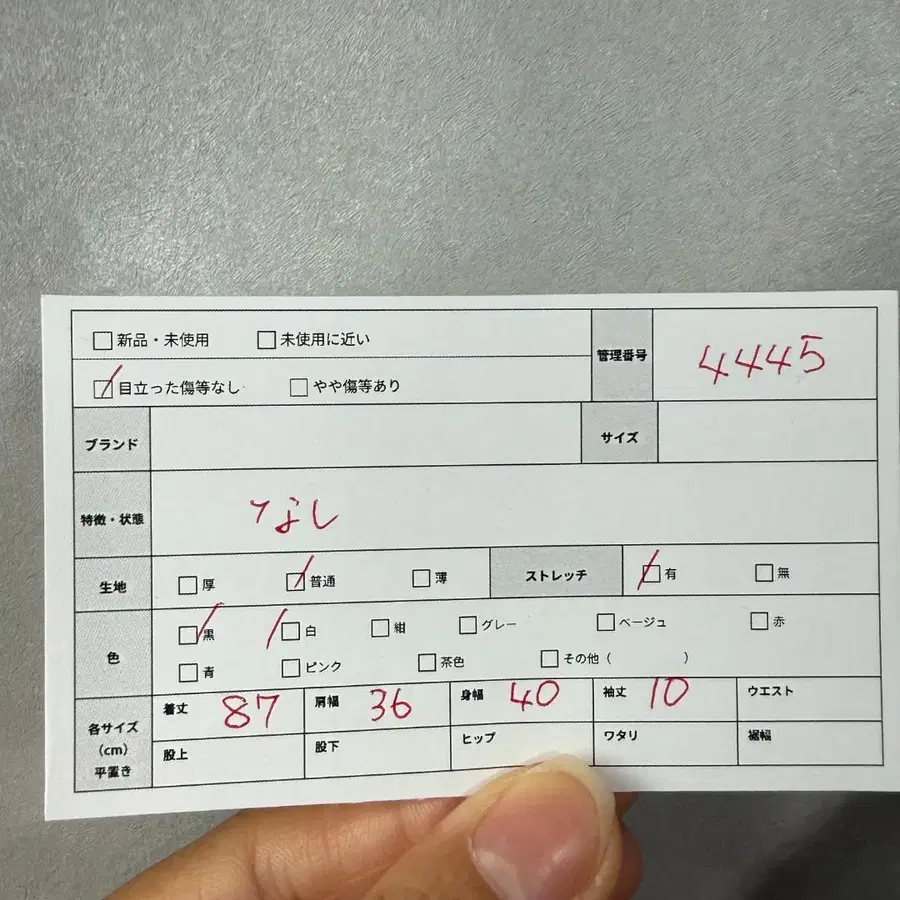 新品・未使用 未使用に近い
管理番号 4445
目立った傷等なし やや傷等あり
ブランド サイズ
特徴・状態 なし
生地 厚 普通 薄 ストレッチ 有 無
色 黒 白 紺 グレー ベージュ 赤
青 ピンク 茶色 その他（ ）
各サイズ（cm）平置き
着丈 87 肩幅 36 身幅 40 袖丈 10 ウエスト
股上 股下 ヒップ ワタリ 裾幅